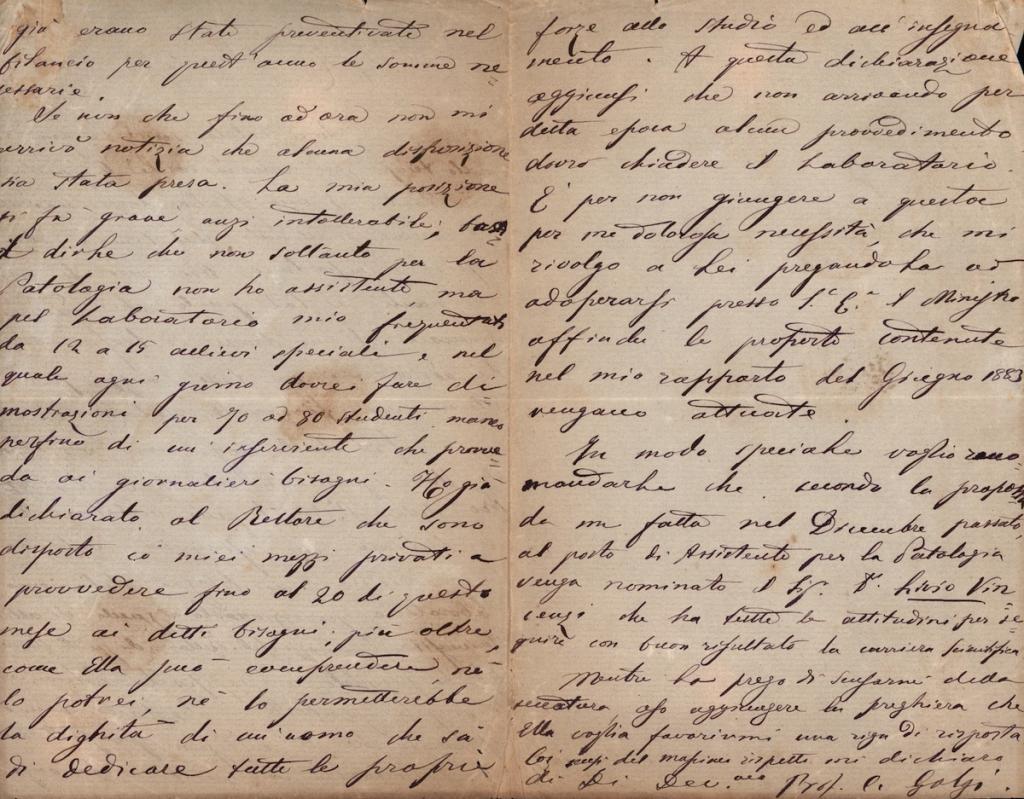 già erano state preventivate nel
bilancio per quest'anno le somme ne
cessarie.
Se non che fino ad ora non mi
arrivò notizia che alcuna disposizione
sia stata presa. La mia posizione
si fa grave, anzi intollerabile;
dirle che non soltanto per la
Patologia non ho assistente, ma
pel Laboratorio mio frequentato
da 12 a 15 allievi speciali e nel
quale ogni giorno dovrei fare di
mostrazioni per 70 ad 80 studenti manco
perfino di un inserviente che provve
da ai giornalieri bisogni. Ho già
dichiarato al Rettore che sono
disposto coi miei mezzi privati a
provvedere fino al 20 di questo
mese ai detti bisogni; più oltre,
come Ella può comprendere, nè
lo potrei, nè lo permetterebbe
la dighità di un uomo che sa
di dedicare tutte le proprie
forze allo studio ed all'insegna
mento. A questa dichiarazione
aggiunsi che non arrivando per
detta epoca alcun provvedimento
dovrò chiudere il Laboratorio.
E per non giungere a questa
per me dolorosa necessità, che mi
rivolgo a Lei pregandola ad
adoperarsi presso S. E. il Ministro
affinchè le proposte contenute
nel mio rapporto del Giugno 1883
vengano attuate.
In modo speciale voglio racco
mandarle che secondo la proposta
da me fatta nel Dicembre passato,
al posto di Assistente per la Patologia
venga nominato il Sig. Dr. Livio Vin
cenzi che ha tutte le attitudini per se
guire con buon risultato la carriera scientifica
Mentre La prego di scusarmi della
seccatura oso aggiungere la preghiera che
Ella voglia favorirmi una riga di risposta
Coi sensi del massimo rispetto mi dichiaro
di Lei Dev.mo Prof. C. Golgi.